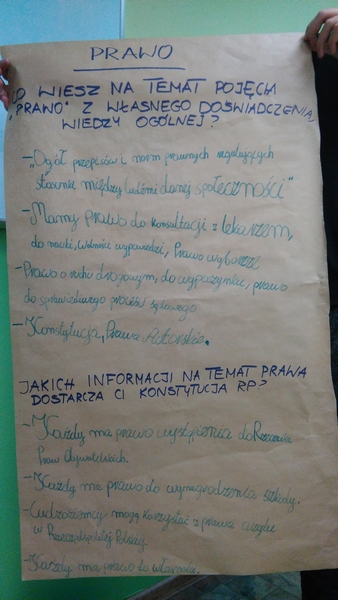 PRAWO
CO WIESZ NA TEMAT POJĘCIA
„PRAWO" Z WŁASNEGO DOŚWIADCZENIA,
WIEDZY OGÓLNEJ?
- „Ogół przepisów i norm prawnych regulujących
stosunki między ludźmi danej społeczności"
- Mamy prawo do konsultacji z lekarzem,
do nauki, wolności wypowiedzi, Prawo wyborcze
- Prawo o ruchu drogowym, do wypoczynku, prawo
do sprawiedliwego procesu sądowego
- Konstytucja, Prawa Autorskie.
JAKICH INFORMACJI NA TEMAT PRAWA
DOSTARCZA CI KONSTYTUCJA RP?
- Każdy ma prawo wystąpienia do Rzecznika
Praw Obywatelskich.
- Każdy ma prawo do wynagrodzenia szkody.
- Cudzoziemcy mogą korzystać z prawa azylu
w Rzeczpospolitej Polskiej
- Każdy ma prawo do własności.